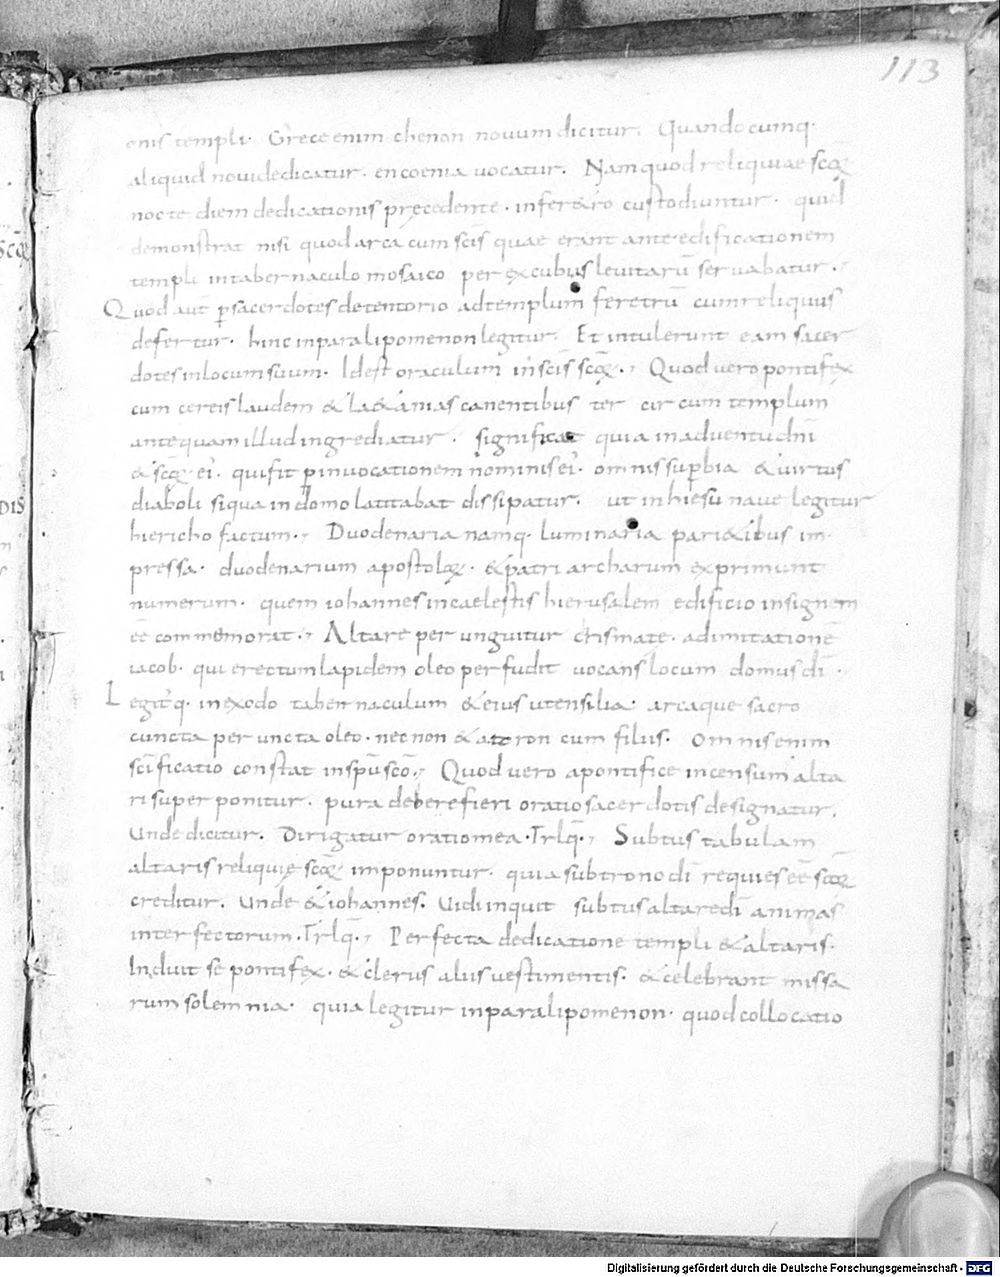 113
onis templi. Grece enim chenon novum dicitur. Quandocumq.
aliquid novi dedicatur. encoenia vocatur. Nam quod reliquiae scōꝝ
nocte diem dedicationis precedente. in feretro custodiuntur. quid
demonstrat nisi quod arca cum scis quae erant ante edificationem
templi in tabernaculo mosaico per excubius levitarū servabatur.,
Quod aut̄ ꝑ sacerdotes de tentorio ad templum feretrū cum reliquiis
defertur. hinc in paralipomenon legitur. Et intulerunt eam sacer
dotes in locum suum. Id est oraculum in scīs scōꝝ., Quod vero pontifex
cum cereis laudem & la&anias canentibus ter circum templum
antequam illud ingrediatur. significat quia in adventu dn̄i
& scōꝝ ei'. qui fit ꝑ invocationem nominis ei'. omnis suꝑbia & virtus
diaboli siqua in domo latitabat dissipatur. ut in hiesu nave legitur
hiericho factum., Duodenaria namq. luminaria pari&ibus im
pressa. duodenarium apostoloꝝ. & patriarcharum exprimunt
numerum. quem iohannes in caelestis hierusalem edificio insignem
eē commemorat., Altare perunguitur chrismate. ad imitationē
iacob. qui erectum lapidem oleo perfudit vocans locum domus dī.
Legit'q. in exodo tabernaculum & eius utensilia. arcaque sacro
cuncta peruncta oleo. nec non & aaron cum filiis. Omnis enim
scīficatio constat in spū scō., Quod vero a pontifice incensum alta
ri superponitur. pura debere fieri oratio sacerdotis designatur.
Unde dicitur. Dirigatur oratio mea. &rlq̄., Subtus tabulam
altaris reliquię scōꝝ imponuntur. quia sub trono dī requies eē scōꝝ
creditur. Unde & iohannes. Vidi inquit subtus altare dī animas
interfectorum. &rlq̄., Perfecta dedicatione templi & altaris.
Induit se pontifex. & clerus aliis vestimentis. & celebrant missa
rum solemnia. quia legitur in paralipomenon. quod collocatio
Digitalisierung gefördert durch die Deutsche Forschungsgemeinschaft - DFG